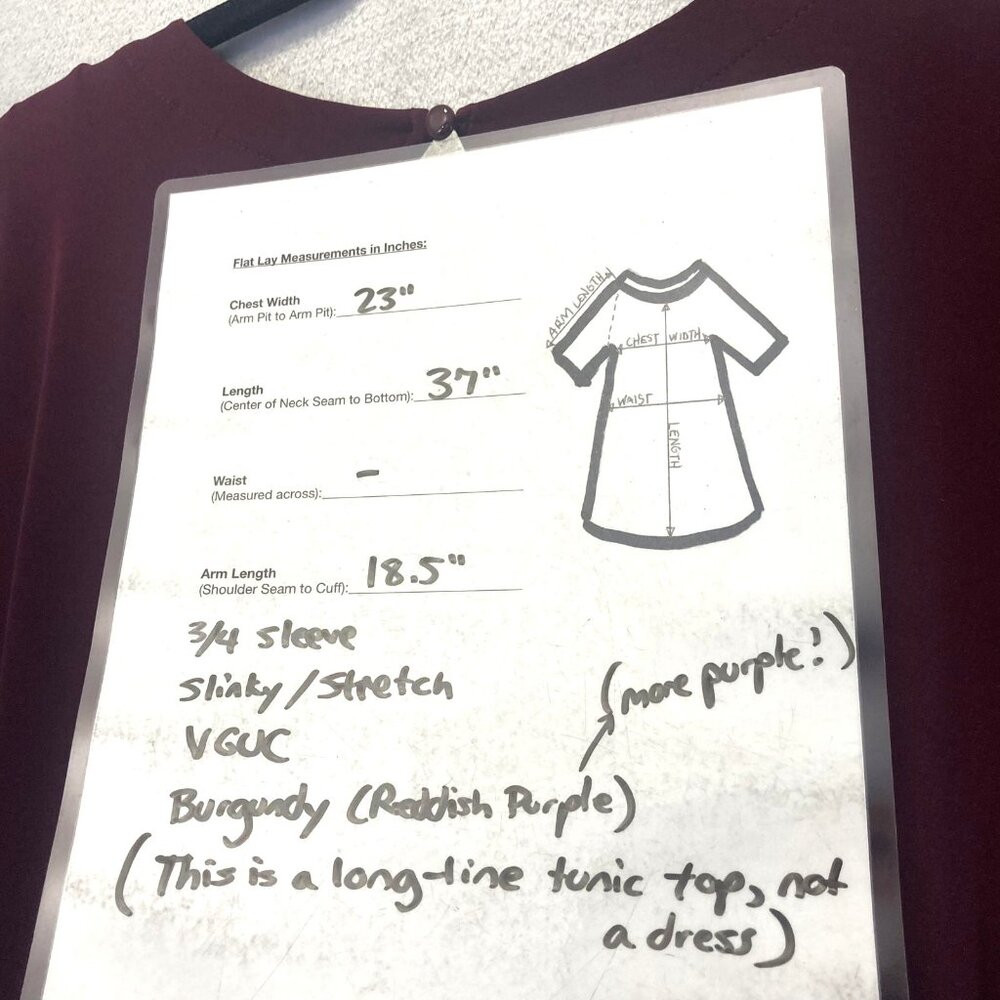 Flat Lay Measurements in Inches:
Chest Width
(Arm Pit to Arm Pit): 23"
Length
(Center of Neck Seam to Bottom): 37"
Waist
(Measured across): -
Arm Length
(Shoulder Seam to Cuff): 18.5"
ARM LENGTH
CHEST WIDTH
WAIST
LENGTH
3/4 sleeve
Slinky/Stretch
VGUC
(more purple!)
Burgundy (Reddish Purple)
(This is a long-line tunic top, not
a dress)